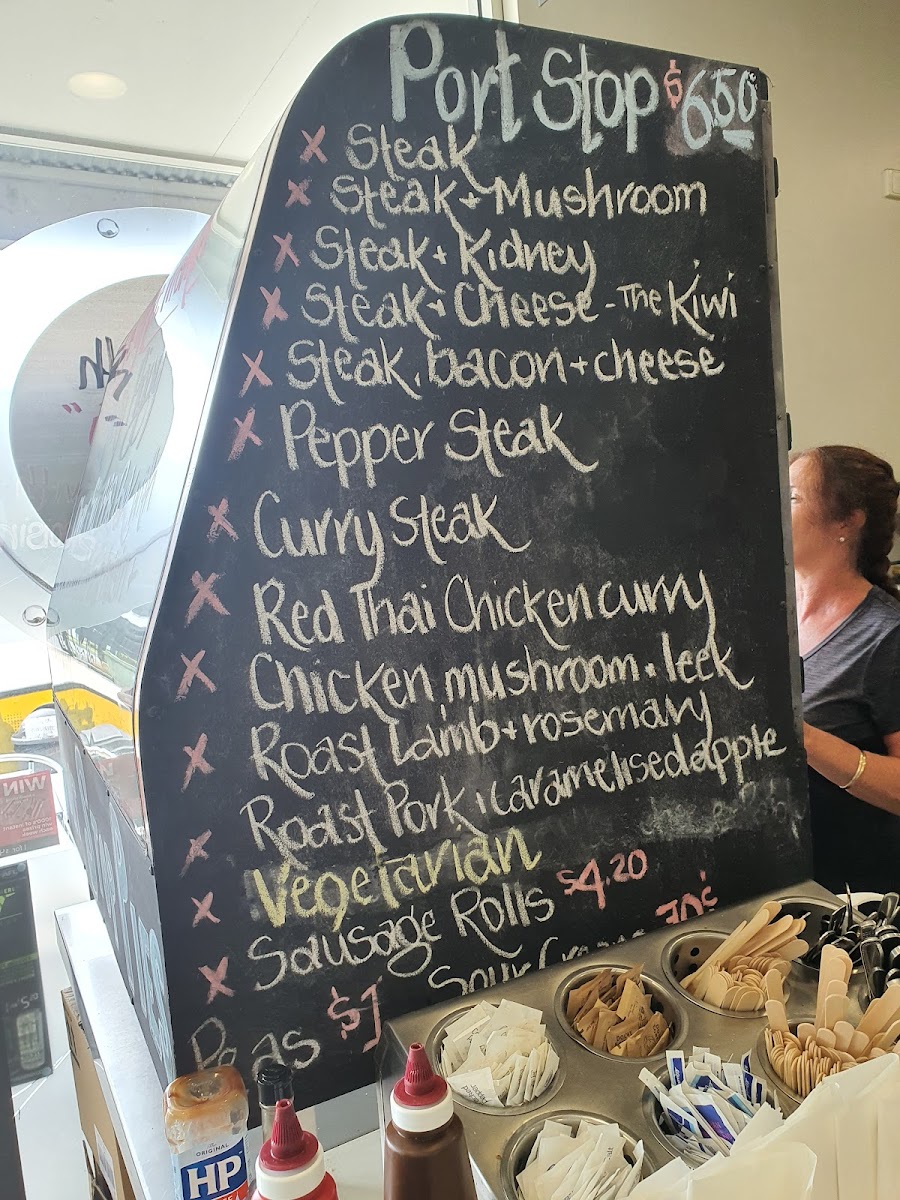 Port Stop $6.50
x Steak
x Steak + Mushroom
x Steak + Kidney
x Steak + Cheese - The Kiwi
x Steak, bacon + cheese
x Pepper Steak
x Curry Steak
x Red Thai Chicken curry
x Chicken, mushroom + leek
x Roast Lamb + rosemary
x Roast Pork, caramelised apple
x Vegetarian
x Sausage Rolls $4.20
Sour 70¢
Peas $1
WIN
ORIGINAL
HP